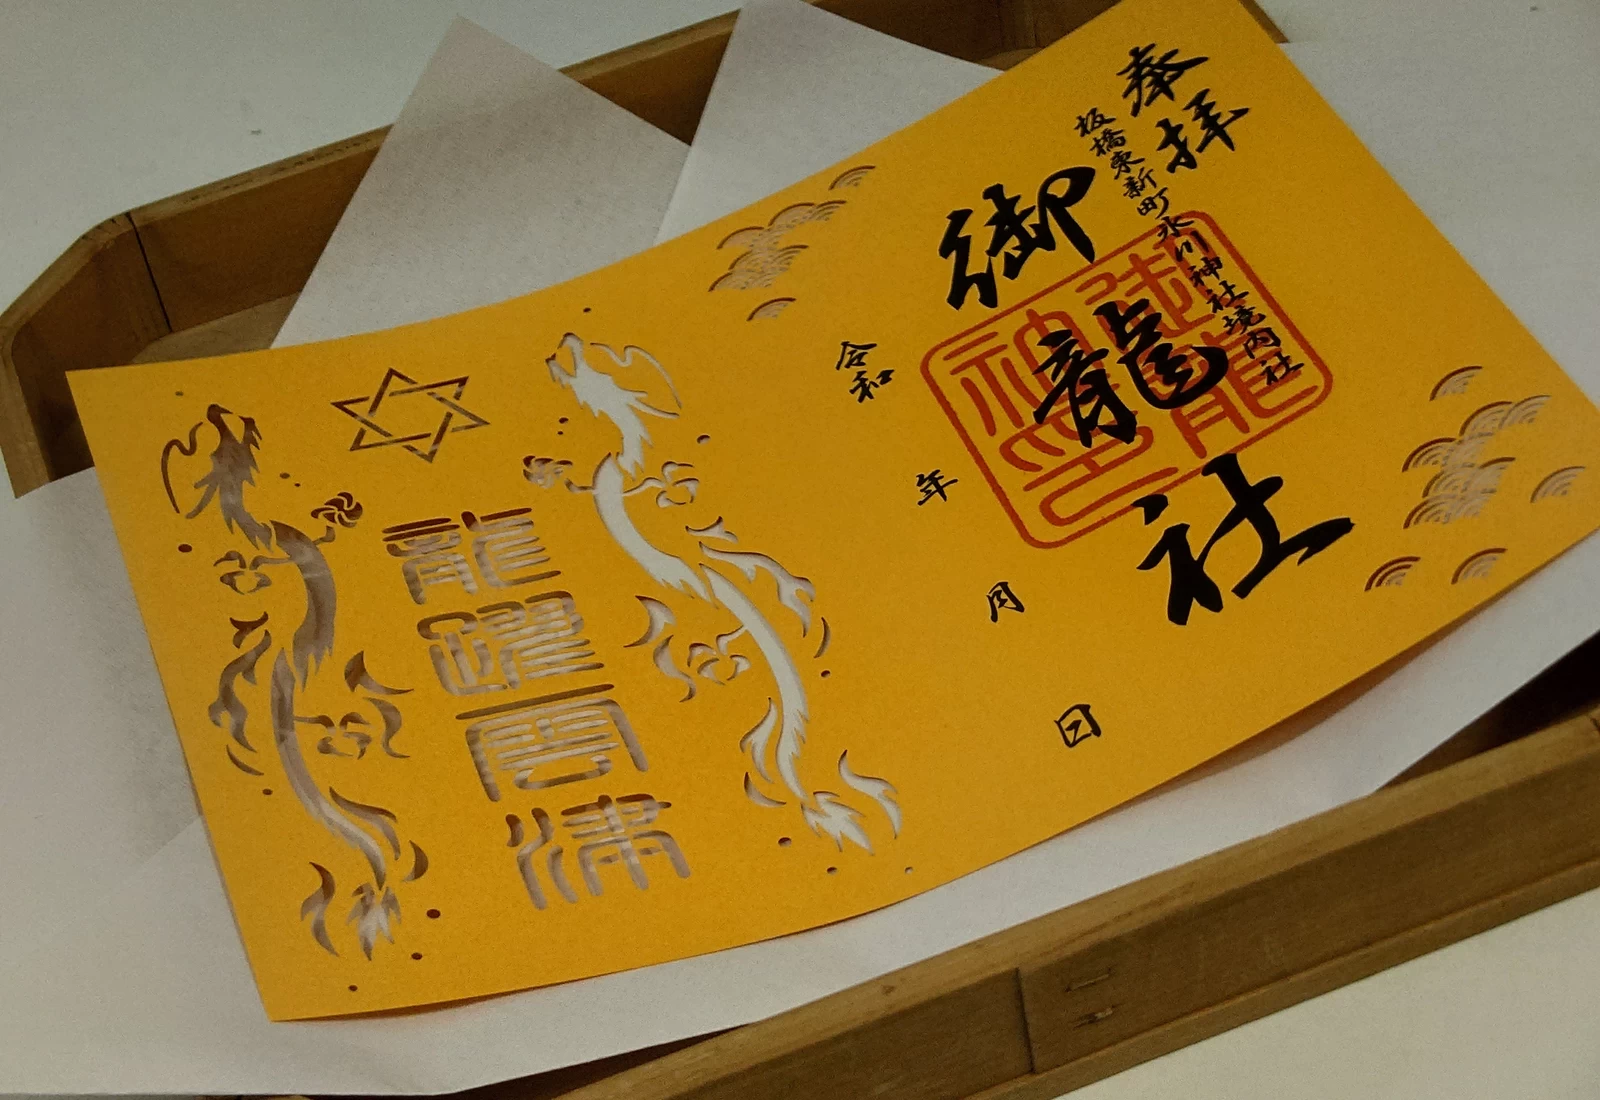 奉拝
板橋東新町氷川神社境内社
御龍社
令和 年 月 日
龍躍雲津